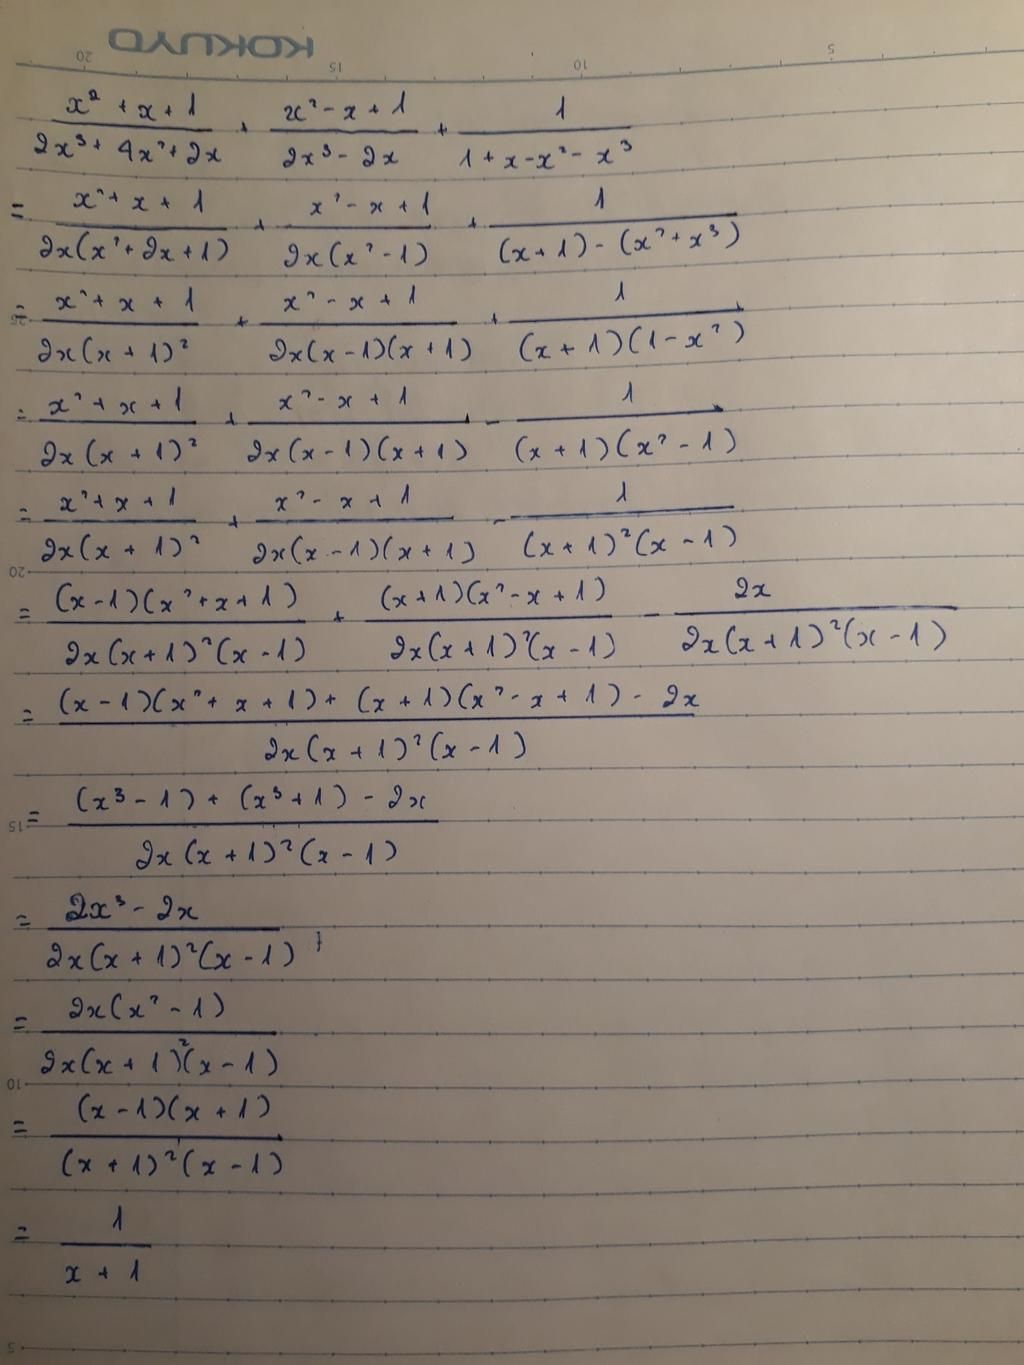 KOKUYO
20 15 10 5
x² + x + 1 / 2x³ + 4x² + 2x + x² - x + 1 / 2x³ - 2x + 1 / 1 + x - x² - x³
= x² + x + 1 / 2x(x² + 2x + 1) + x² - x + 1 / 2x(x² - 1) + 1 / (x + 1) - (x² + x³)
= x² + x + 1 / 2x(x + 1)² + x² - x + 1 / 2x(x - 1)(x + 1) + 1 / (x + 1)(1 - x²)
25
= x² + x + 1 / 2x(x + 1)² + x² - x + 1 / 2x(x - 1)(x + 1) - 1 / (x + 1)(x² - 1)
= x² + x + 1 / 2x(x + 1)² + x² - x + 1 / 2x(x - 1)(x + 1) - 1 / (x + 1)²(x - 1)
20
= (x - 1)(x² + x + 1) / 2x(x + 1)²(x - 1) + (x + 1)(x² - x + 1) / 2x(x + 1)²(x - 1) - 2x / 2x(x + 1)²(x - 1)
= (x - 1)(x² + x + 1) + (x + 1)(x² - x + 1) - 2x / 2x(x + 1)²(x - 1)
= (x³ - 1) + (x³ + 1) - 2x / 2x(x + 1)²(x - 1)
15
= 2x³ - 2x / 2x(x + 1)²(x - 1)
= 2x(x² - 1) / 2x(x + 1)²(x - 1)
10
= (x - 1)(x + 1) / (x + 1)²(x - 1)
= 1 / x + 1
5